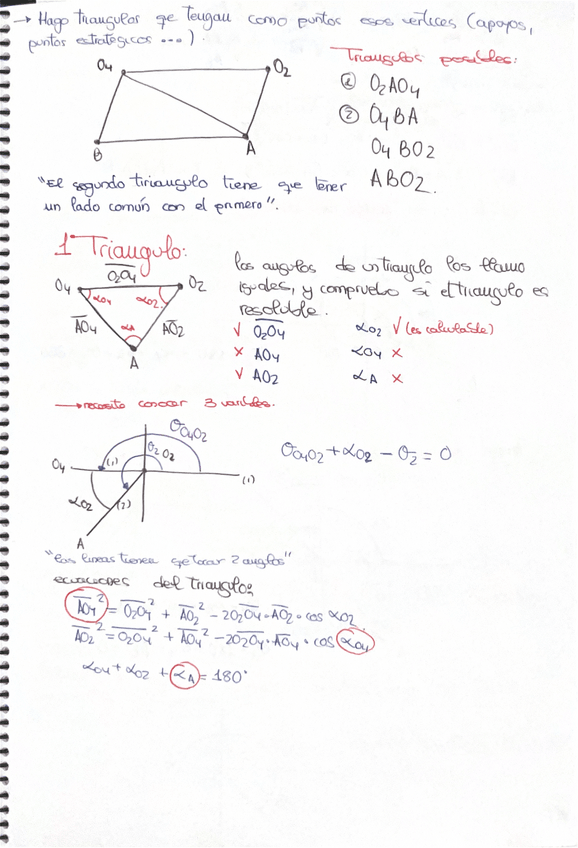 → Hago triangulos qe tengan como puntos esos vertices (apoyos,
puntos estratégicos ...).
O4
O2
B
A
Triangulos posibles:
① O2AO4
② O4BA
O4BO2
ABO2.
"El segundo tiriangulo tiene que tener
un lado común con el primero".
1 Triangulo:
O2O4
O4
O2
αO4
αO2
AO4
αA
AO2
A
los angulos de un triangulo los llamo
iguales, y compruebo si el triangulo es
resoluble.
√ O2O4
αO2 √ (es calculable)
x AO4
αO4 x
√ AO2
αA x
→ necesito conocer 3 variables.
θO4O2
θ2
O2
O4
(1)
(1)
αO2
(2)
A
θO4O2 + αO2 - θ2 = 0
"las lineas tienen qe tocar 2 anglos"
ecuaciones del triangulo:
AO4² = O2O4² + AO2² - 2O2O4·AO2·cos αO2
AO2² = O2O4² + AO4² - 2O2O4·AO4·cos αO4
αO4 + αO2 + αA = 180°